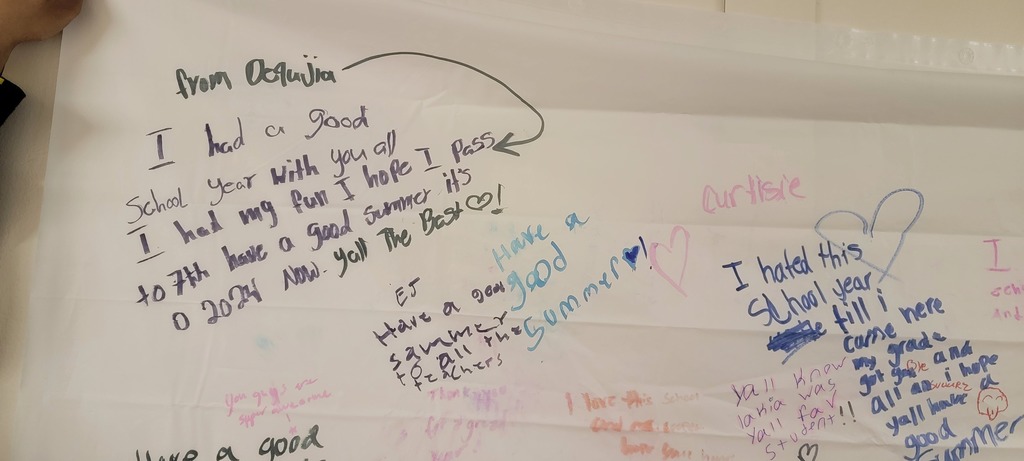 from Dequijia
I had a good
School year with you all
I had my fun I hope I Pass
to 7th have a good summer it's
0 2024 Now. yall The Bast
Have a
good
Summer!
EJ
Have a good
summer
to all the
teachers
curtisie
I hated this
School year
till i
came here
my grade
got and
all an i hope
yall have a
good
summer
I
and
yall know
lakia was
yall fav
student!!
you guys are
super awesome
Have a good
Thank you
I love this school
and